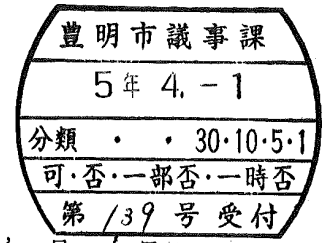 豊明市議事課
5年 4. - 1
分類 ・ ・ 30・10・5・1
可・否・一部否・一時否
第 139 号 受付